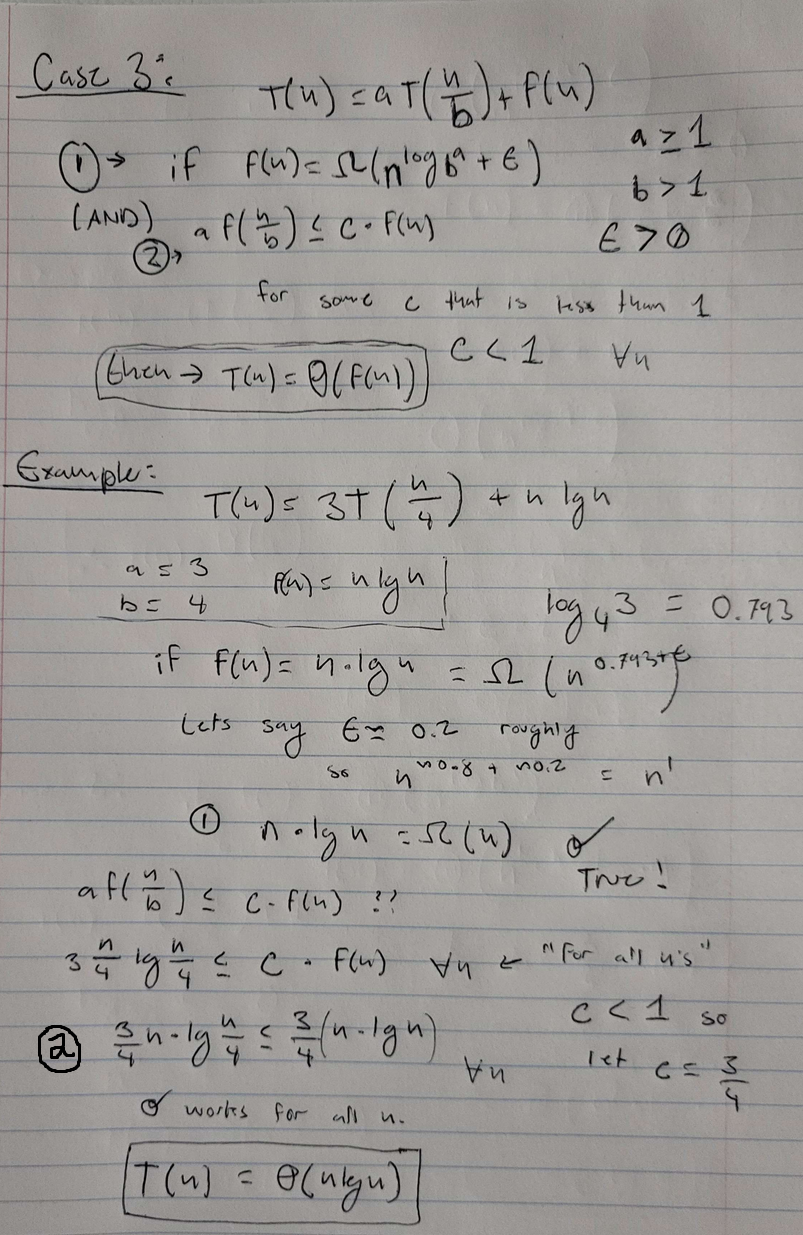 Case 3:
T(n) = aT(n/b) + f(n)
① → if f(n) = Ω(n^log_b^a + ε)
a ≥ 1
b > 1
ε > 0
(AND)
② → a f(n/b) ≤ c · f(n)
for some c that is less than 1
c < 1 ∀n
then → T(n) = Θ(f(n))
Example:
T(n) = 3T(n/4) + n lg n
a = 3
b = 4
f(n) = n lg n
log_4 3 = 0.793
if f(n) = n·lg n = Ω(n^0.793+ε)
Lets say ε ≈ 0.2 roughly
so n^~0.8 + ~0.2 = n^1
① n·lg n = Ω(n) ✓
True!
a f(n/b) ≤ c · f(n) ??
3 n/4 lg n/4 ≤ c · f(n) ∀n ← "for all n's"
c < 1 so
let c = 3/4
② 3/4 n·lg n/4 ≤ 3/4 (n·lg n) ∀n
✓ works for all n.
T(n) = Θ(n lg n)